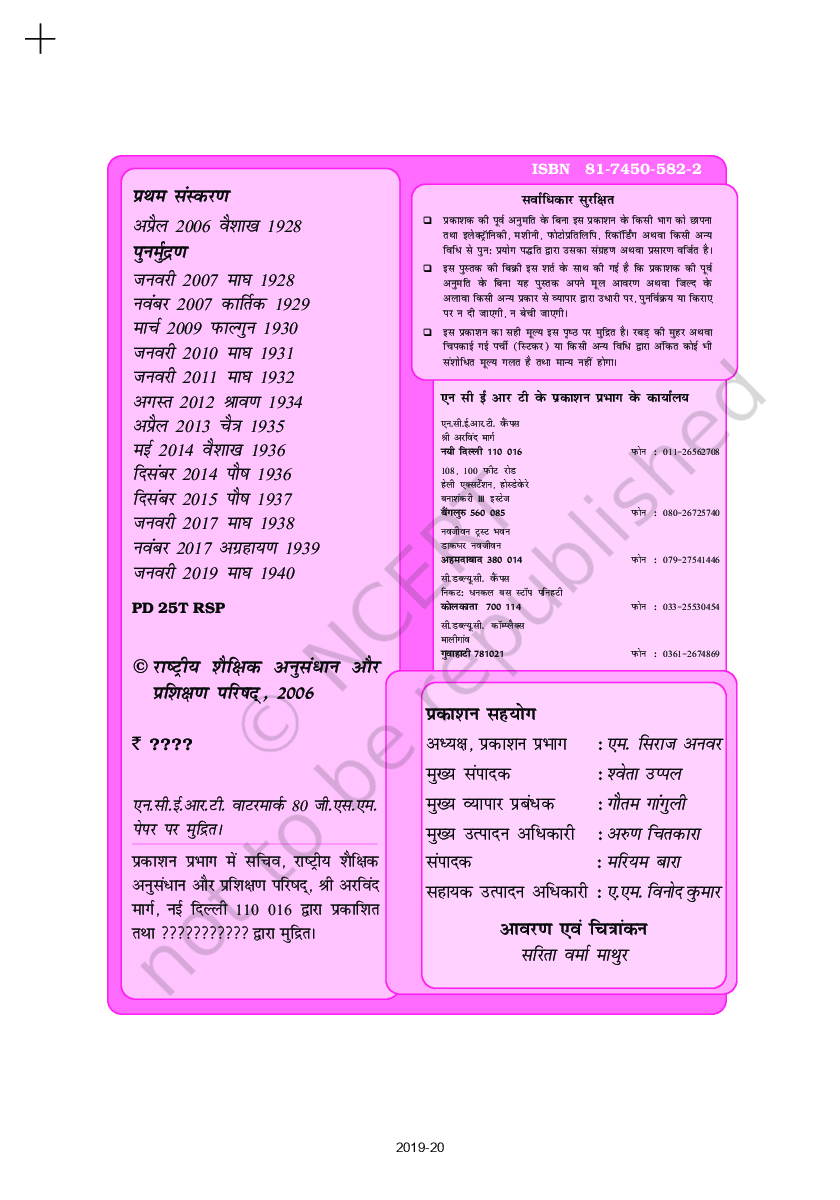 ISBN 81-7450-582-2
प्रथम संस्करण
अप्रैल 2006 वैशाख 1928
पुनर्मुद्रण
जनवरी 2007 माघ 1928
नवंबर 2007 कार्तिक 1929
मार्च 2009 फाल्गुन 1930
जनवरी 2010 माघ 1931
जनवरी 2011 माघ 1932
अगस्त 2012 श्रावण 1934
अप्रैल 2013 चैत्र 1935
मई 2014 वैशाख 1936
दिसंबर 2014 पौष 1936
दिसंबर 2015 पौष 1937
जनवरी 2017 माघ 1938
नवंबर 2017 अग्रहायण 1939
जनवरी 2019 माघ 1940
PD 25T RSP
© राष्ट्रीय शैक्षिक अनुसंधान और
प्रशिक्षण परिषद्, 2006
₹ ????
एन.सी.ई.आर.टी. वाटरमार्क 80 जी.एस.एम.
पेपर पर मुद्रित।
प्रकाशन प्रभाग में सचिव, राष्ट्रीय शैक्षिक
अनुसंधान और प्रशिक्षण परिषद्, श्री अरविंद
मार्ग, नई दिल्ली 110 016 द्वारा प्रकाशित
तथा ??????????? द्वारा मुद्रित।
सर्वाधिकार सुरक्षित
❑ प्रकाशक की पूर्व अनुमति के बिना इस प्रकाशन के किसी भाग को छापना
तथा इलेक्ट्रॉनिकी, मशीनी, फोटोप्रतिलिपि, रिकॉर्डिंग अथवा किसी अन्य
विधि से पुन: प्रयोग पद्धति द्वारा उसका संग्रहण अथवा प्रसारण वर्जित है।
❑ इस पुस्तक की बिक्री इस शर्त के साथ की गई है कि प्रकाशक की पूर्व
अनुमति के बिना यह पुस्तक अपने मूल आवरण अथवा जिल्द के
अलावा किसी अन्य प्रकार से व्यापार द्वारा उधारी पर, पुनर्विक्रय या किराए
पर न दी जाएगी, न बेची जाएगी।
❑ इस प्रकाशन का सही मूल्य इस पृष्ठ पर मुद्रित है। रबड़ की मुहर अथवा
चिपकाई गई पर्ची (स्टिकर) या किसी अन्य विधि द्वारा अंकित कोई भी
संशोधित मूल्य गलत है तथा मान्य नहीं होगा।
एन सी ई आर टी के प्रकाशन प्रभाग के कार्यालय
एन.सी.ई.आर.टी. कैंपस
श्री अरविंद मार्ग
नयी दिल्ली 110 016 फोन : 011-26562708
108, 100 फीट रोड
हेली एक्सटेंशन, होस्डेकेरे
बनाशंकरी III इस्टेज
बैंगलुरु 560 085 फोन : 080-26725740
नवजीवन ट्रस्ट भवन
डाकघर नवजीवन
अहमदाबाद 380 014 फोन : 079-27541446
सी.डब्ल्यू.सी. कैंपस
निकट: धनकल बस स्टॉप पनिहटी
कोलकाता 700 114 फोन : 033-25530454
सी.डब्ल्यू.सी. कॉम्प्लैक्स
मालीगांव
गुवाहाटी 781021 फोन : 0361-2674869
प्रकाशन सहयोग
अध्यक्ष, प्रकाशन प्रभाग : एम. सिराज अनवर
मुख्य संपादक : श्वेता उप्पल
मुख्य व्यापार प्रबंधक : गौतम गांगुली
मुख्य उत्पादन अधिकारी : अरुण चितकारा
संपादक : मरियम बारा
सहायक उत्पादन अधिकारी : ए.एम. विनोद कुमार
आवरण एवं चित्रांकन
सरिता वर्मा माथुर
© NCERT
not to be republished
2019-20